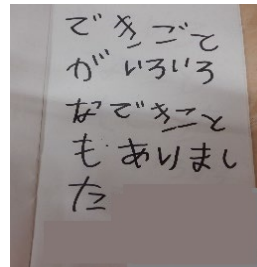 できごと
がいろいろ
なできこと
もありまし
た